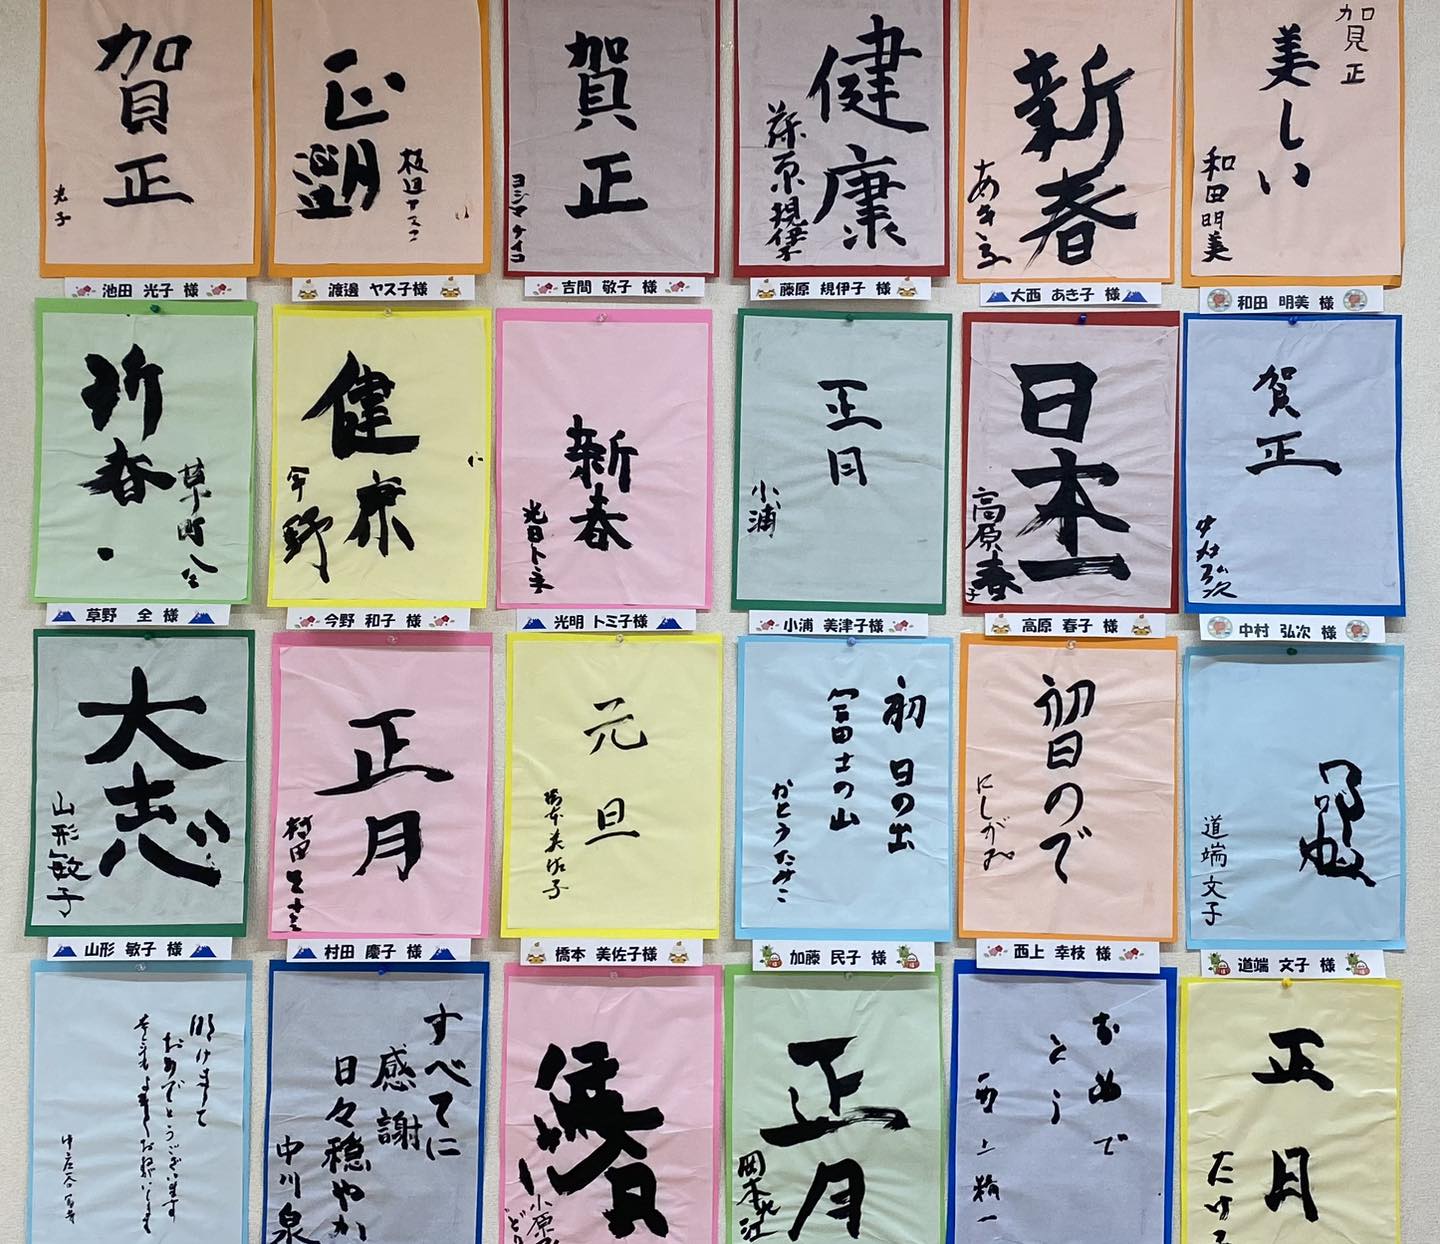 賀正
光子
池田 光子 様
正月
渡邊 ヤス子様
賀正
ヨシマ ケイコ
吉間 敬子 様
健康
藤原規伊子
藤原 規伊子 様
新春
あき子
大西 あき子 様
賀正
美しい
和田明美
和田 明美 様
新春
草野 全 様
健康
今野
今野 和子 様
新春
光明トミ子
光明 トミ子様
正月
小浦
小浦 美津子様
日本一
高原春子
高原 春子 様
賀正
中村弘次
中村 弘次 様
大志
山形敏子
山形 敏子 様
正月
村田
村田 慶子 様
元旦
橋本美佐子
橋本 美佐子様
初日の出
富士の山
かとうたみこ
加藤 民子 様
初日ので
にしがみ
西上 幸枝 様
道端文子
道端 文子 様
明けまして
おめでとうございます
すべてに
感謝
日々穏やか
中川泉
小原
正月
岡本
おめで
とう
西上精一
正月
たけ子